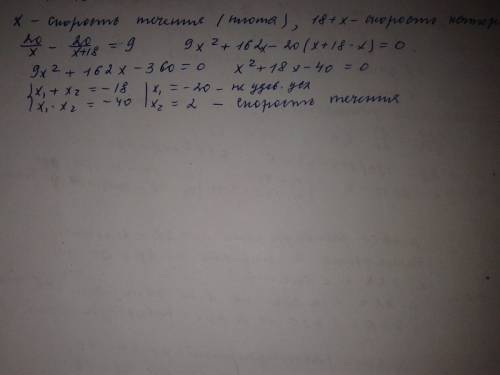 x - скорость течения (плота), 18+x - скорость катер
20/x - 20/(x+18) = 9    9x² + 162x - 20(x+18-x) = 0
9x² + 162x - 360 = 0    x² + 18x - 40 = 0
{x₁ + x₂ = -18 | x₁ = -20 - не удов. усл
{x₁ · x₂ = -40 | x₂ = 2 - скорость течения